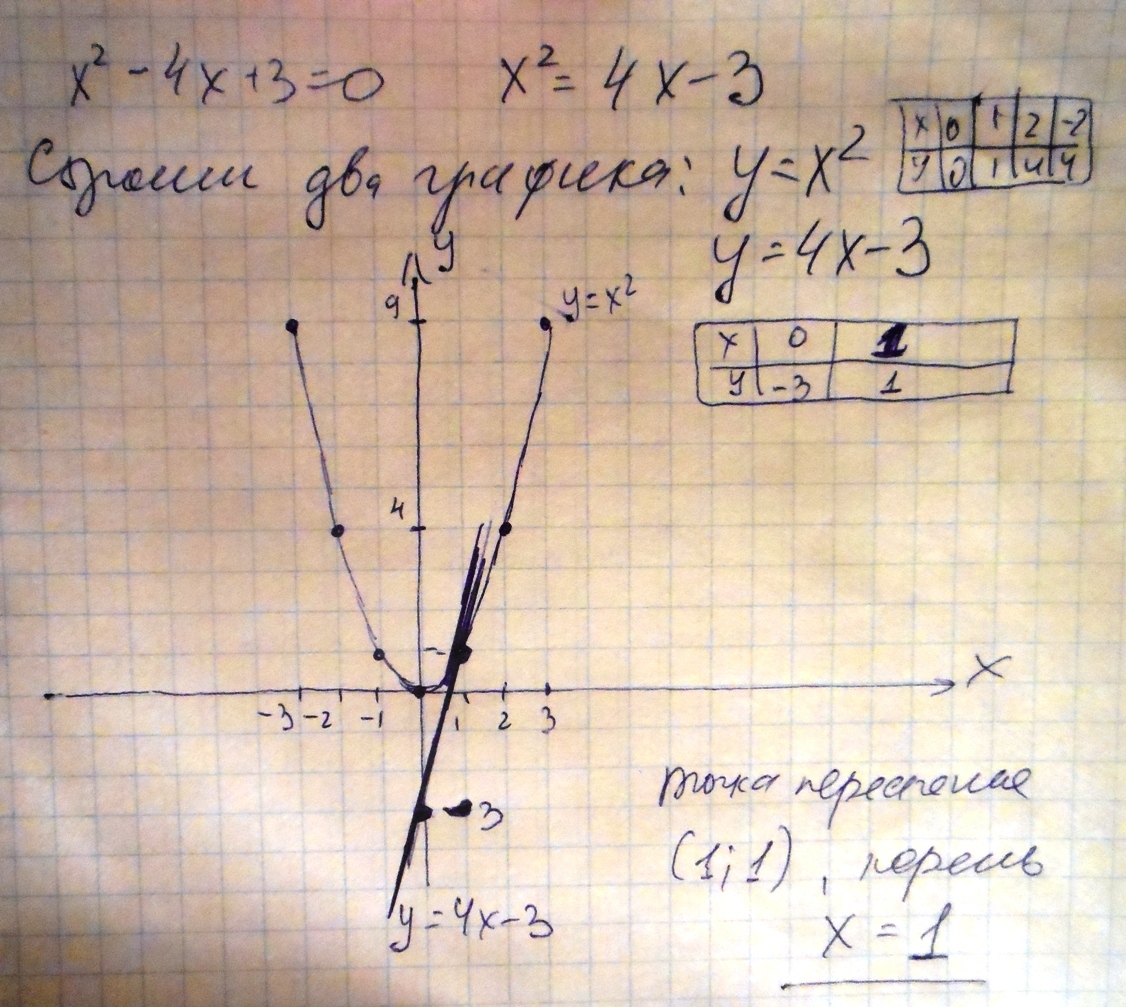 x² - 4x + 3 = 0 x² = 4x - 3
Строим два графика: y = x²
x 0 1 2 -2
y 0 1 4 4
y = 4x - 3
x 0 1
y -3 1
y
9
y = x²
4
x
-3 -2 -1 1 2 3
-3
y = 4x - 3
точка пересечения
(1;1), корень
x = 1